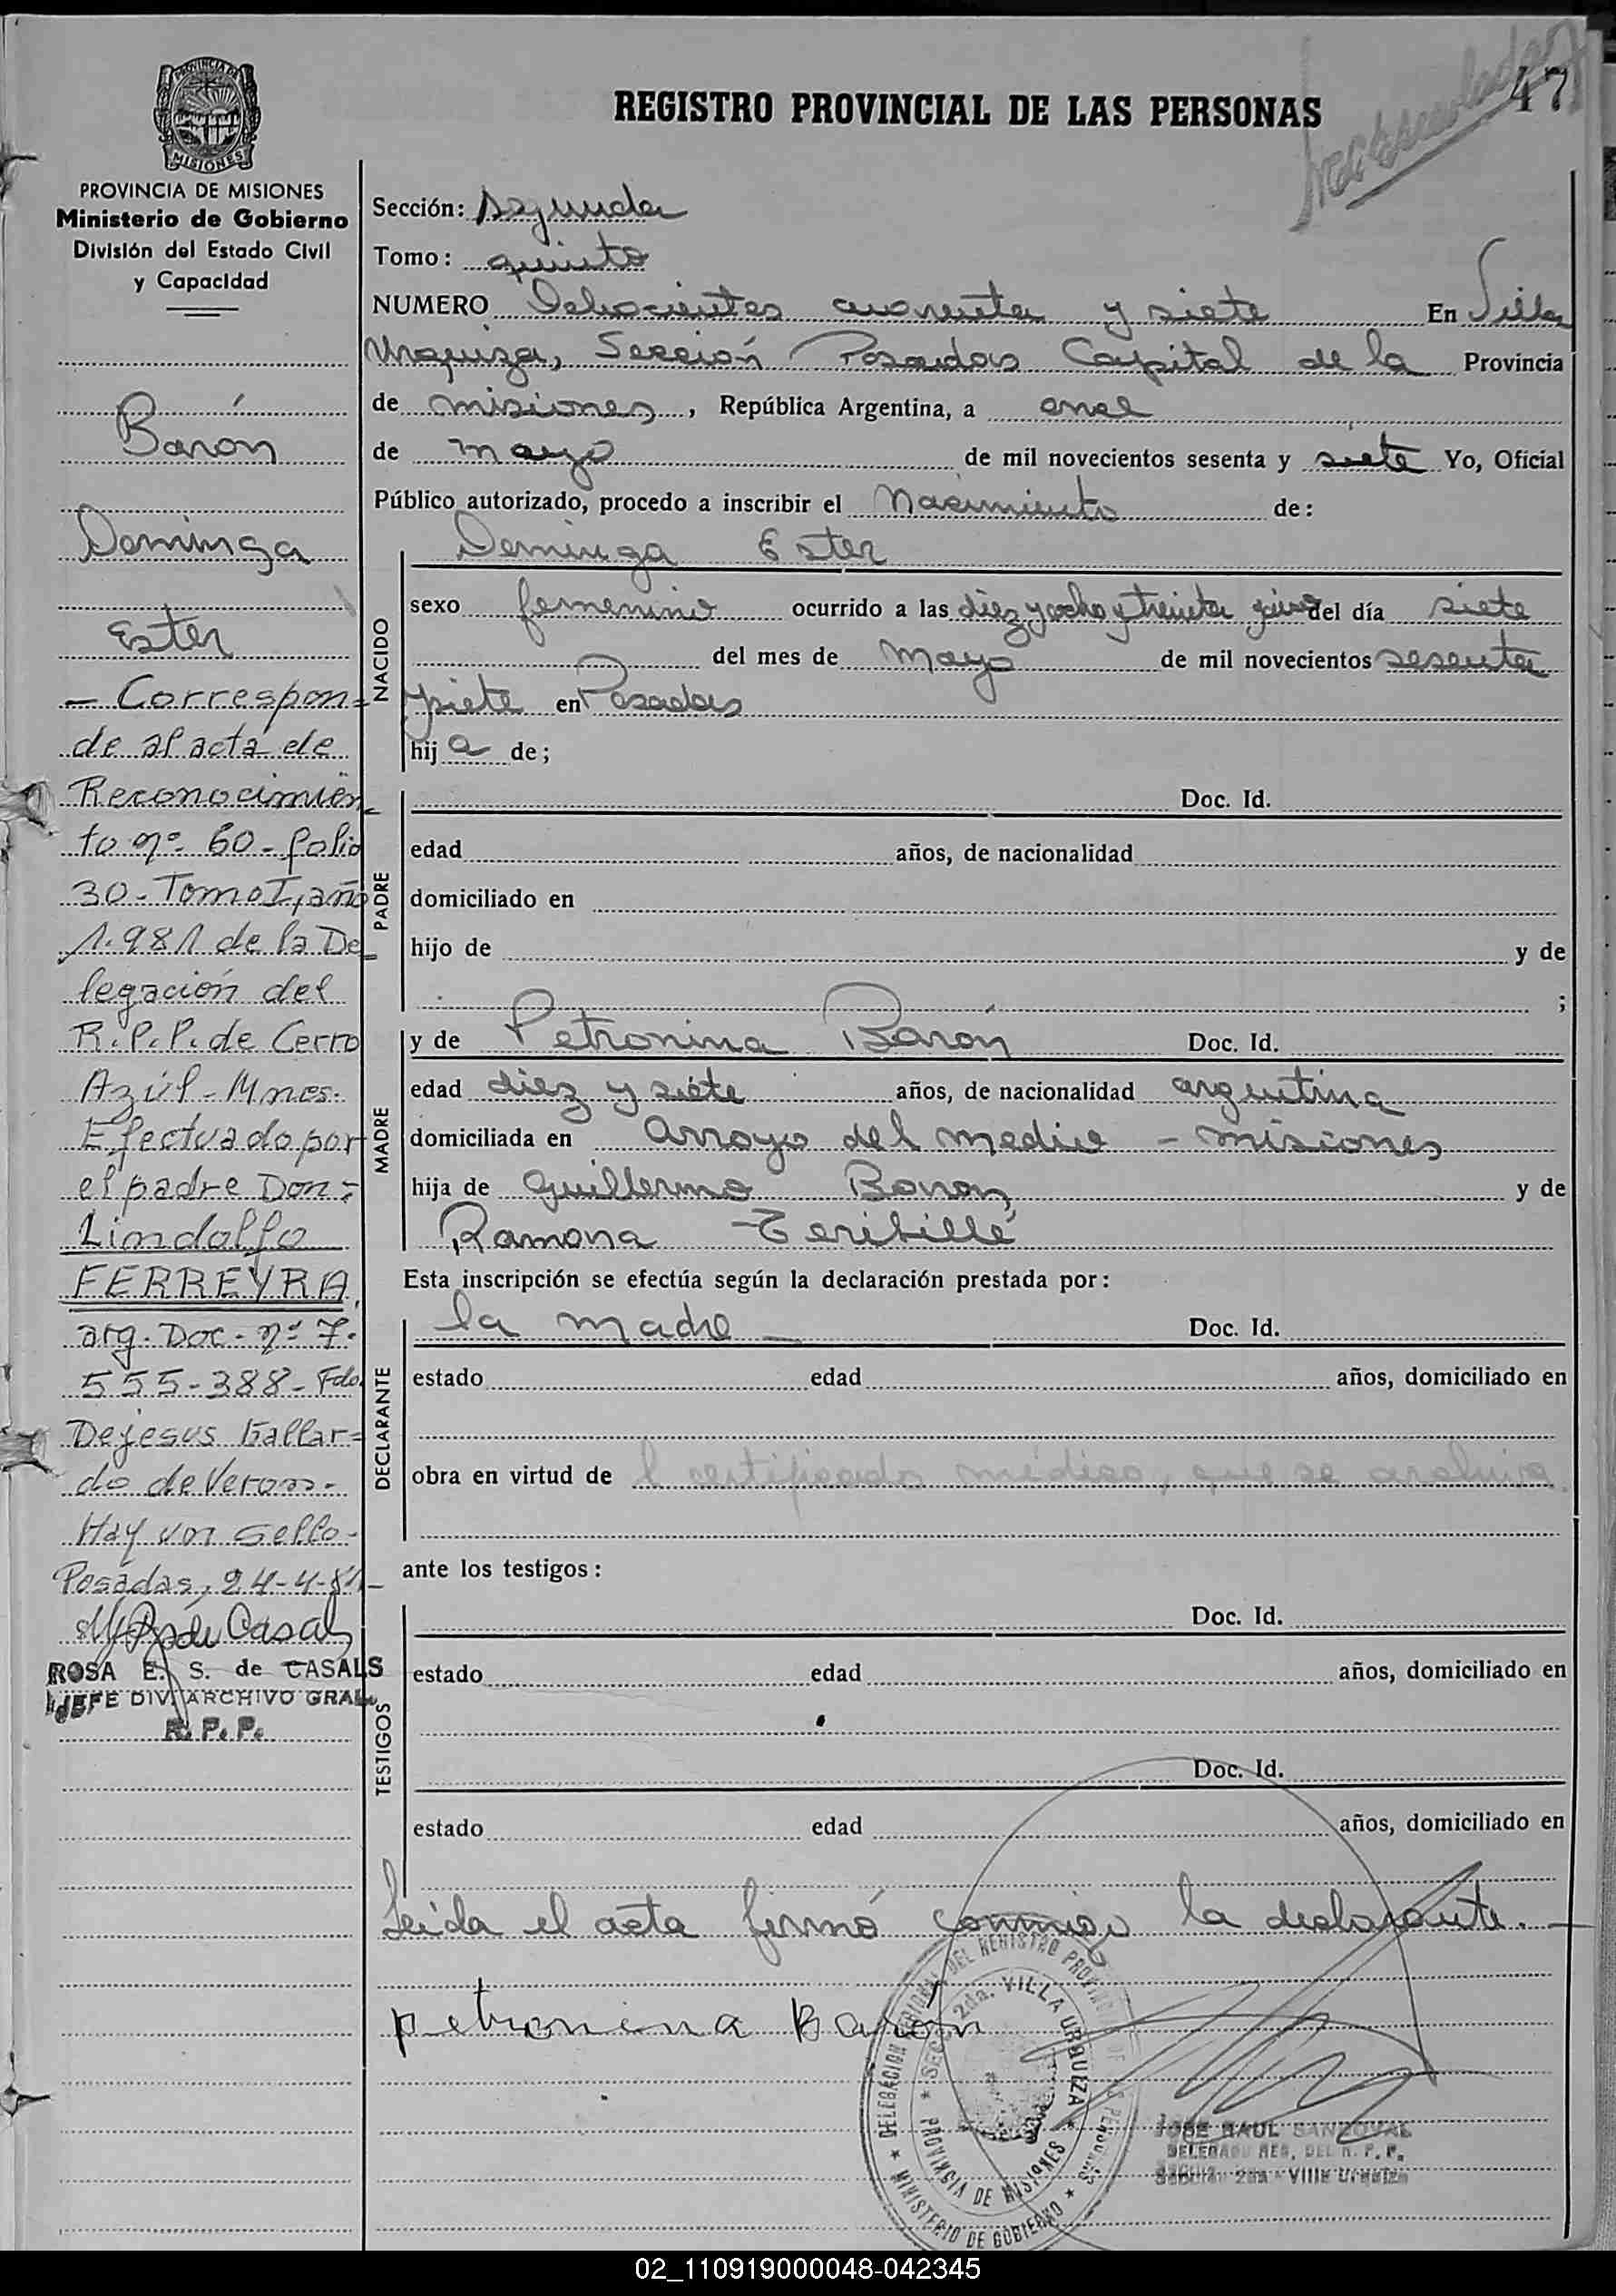 47
REGISTRO PROVINCIAL DE LAS PERSONAS
PROVINCIA DE
MISIONES
PROVINCIA DE MISIONES
Ministerio de Gobierno
División del Estado Civil
y Capacidad
Barón
Dominga
Ester
- Correspon=
de al acta de
Reconocimien
to nº 60 - folio
30 - Tomo I, año
1.981 de la De
legación del
R.P.P. de Cerro
Azúl - Mnes.
Efectuado por
el padre Don:-
Lindolfo
FERREYRA,
arg. Doc - nº 7.
555-388 - Fdo.
Dejesus Gallar=
do de Veron -
Hay un sello -
Posadas, 24-4-81-
ROSA E. S. de CASALS
JEFE DIV. ARCHIVO GRAL.
R. P. P.
Sección: Segunda
Tomo: quinto
NUMERO Ochocientos cuarenta y siete En Villa
Urquiza, Sección Posadas Capital de la Provincia
de misiones, República Argentina, a once
de mayo de mil novecientos sesenta y siete Yo, Oficial
Público autorizado, procedo a inscribir el Nacimiento de:
Dominga Ester
NACIDO
sexo femenino ocurrido a las diez y ocho y treinta del día siete
del mes de mayo de mil novecientos sesenta
y siete en Posadas
hij a de;
PADRE
Doc. Id.
edad años, de nacionalidad
domiciliado en
hijo de y de
;
MADRE
y de Petronina Barón Doc. Id.
edad diez y siete años, de nacionalidad argentina
domiciliada en Arroyo del medio - misiones
hija de Guillermo Baron y de
Ramona
Esta inscripción se efectúa según la declaración prestada por:
DECLARANTE
la madre - Doc. Id.
estado edad años, domiciliado en
obra en virtud de l certificado médico, que se archiva
ante los testigos:
TESTIGOS
Doc. Id.
estado edad años, domiciliado en
Doc. Id.
estado edad años, domiciliado en
Leida el acta firmó conmigo la declarante. -
petronina Barón
DELEGACION REGIONAL DEL REGISTRO PROVINCIAL DE LAS PERSONAS
SECC. 2da. VILLA URQUIZA
PROVINCIA DE MISIONES
MINISTERIO DE GOBIERNO
JOSE RAUL SANDOVAL
DELEGADO REG. DEL R. P. P.
Sección 2da - Villa Urquiza
02_110919000048-042345